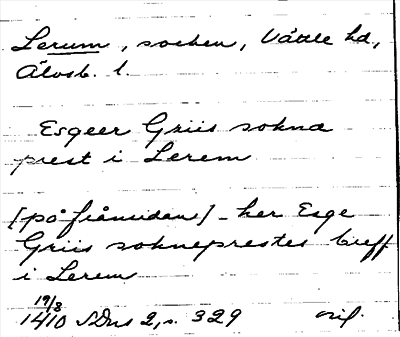 Lerum, socken, Vättle hd,
Älvsb. l.
Esgeer Griis sokna
prest i Lerem
[på frånsidan] - her Esge
Griis sokneprestes breff
i Lerem
19/8
1410 SDns 2, s. 329 orig.